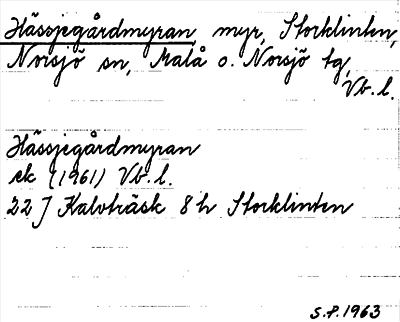 Hässjegårdmyran myr, Storklinten,
Norsjö sn, Malå o. Norsjö tg,
Vb. l.
Hässjegårdmyran
ek (1961) Vb. l.
22 J Kalvträsk 8 h Storklinten
S.P. 1963